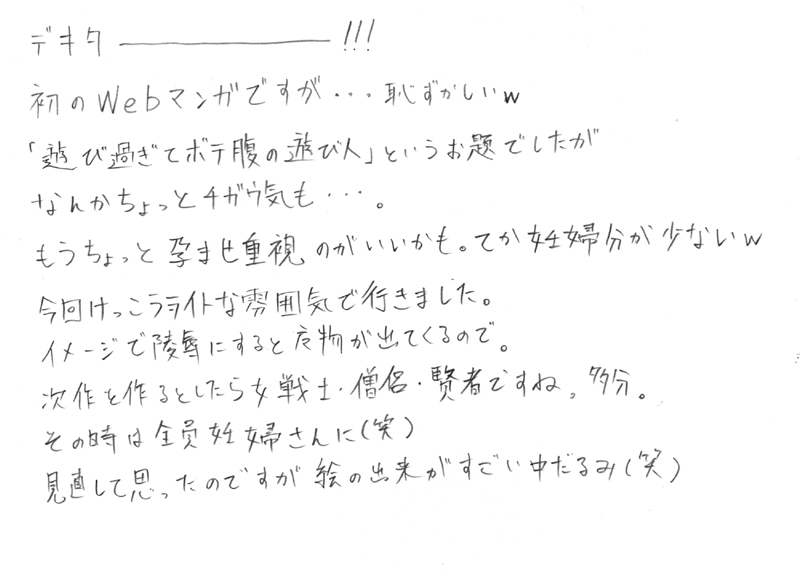 デキター!!!
初のWebマンガですが・・・恥ずかしいw
「遊び過ぎてボテ腹の遊び人」というお題でしたが
なんかちょっとチガウ気も・・・。
もうちょっと孕ませ重視のがいいかも。てか妊婦分が少ないw
今回けっこうライトな雰囲気で行きました。
イメージで陵辱にすると危物が出てくるので。
次作を作るとしたら女戦士・僧侶・賢者ですね。多分。
その時は全員妊婦さんに(笑)
見直して思ったのですが絵の出来がすごい中だるみ(笑)